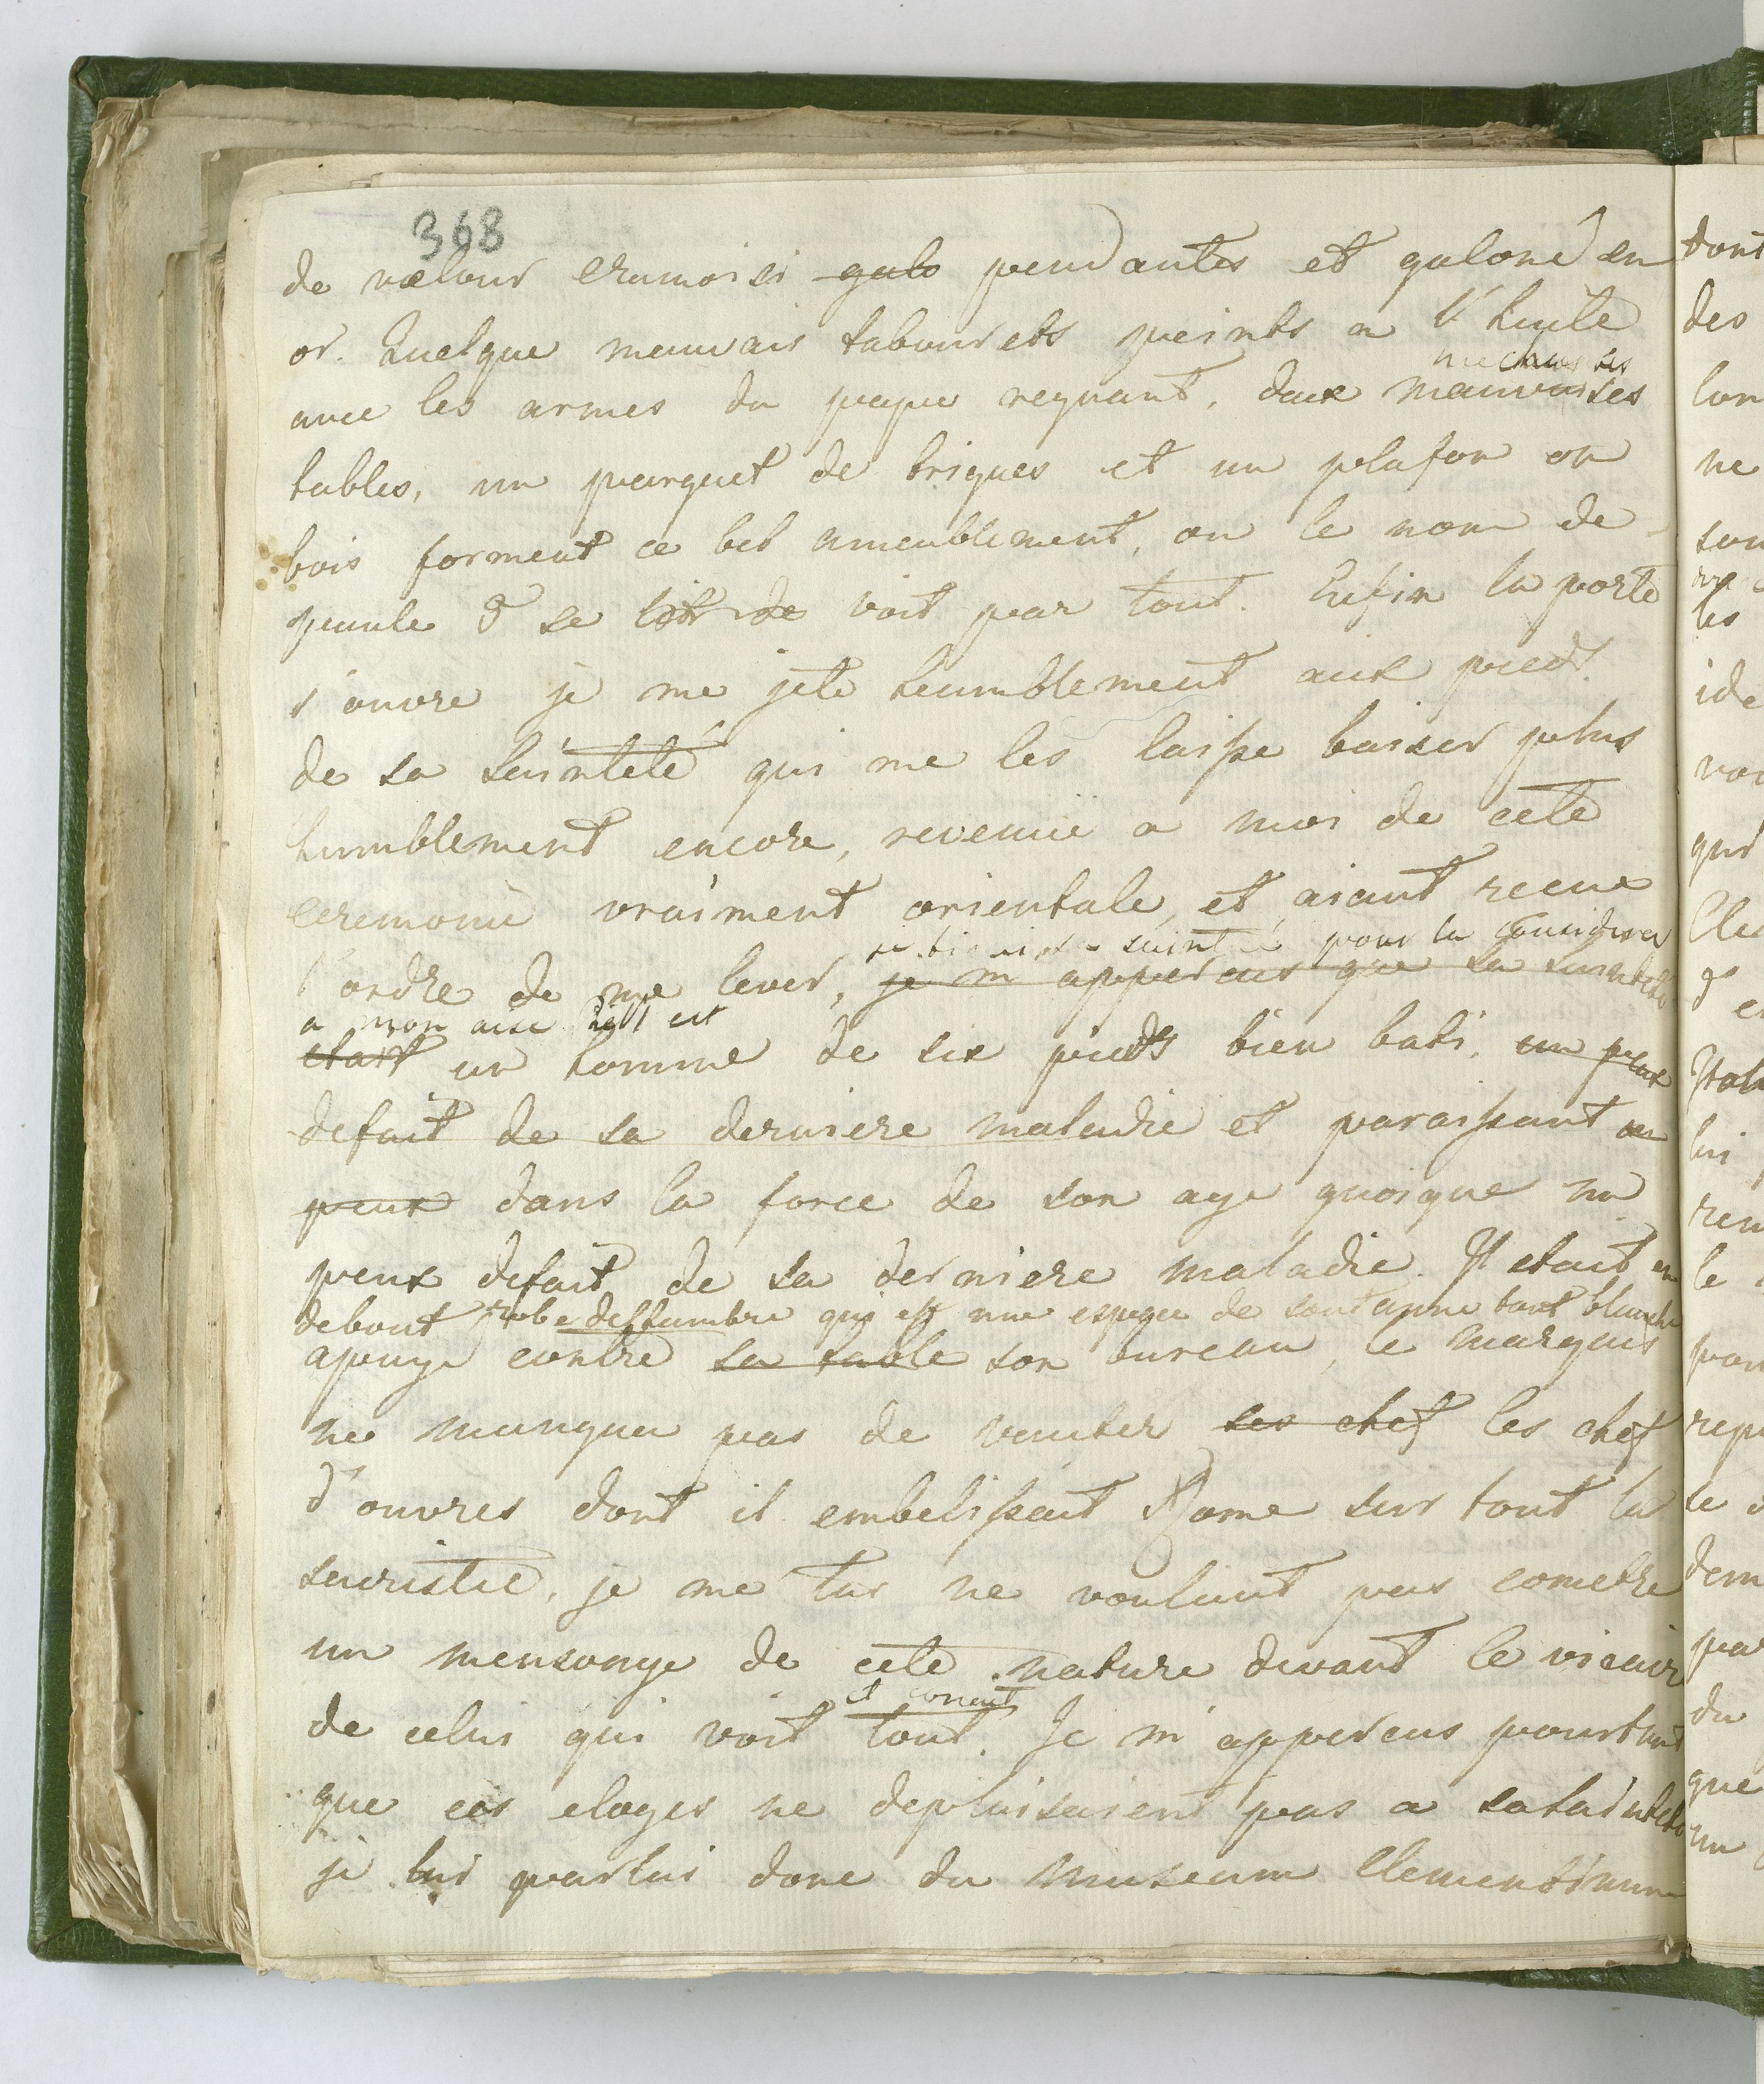 368
de velour cramoisi galo pendantes et galoné en
or. Quelque mauvais tabourets peints a l'huile
mechantes
avec les armes du pape regnant, deux mauvaises
tables, un parquet de briques et un plafon en
bois forment ce bel ameublement, ou le nom de
se voit par tout. Enfin la porte
s'ouvre je me jete heumblement aux pieds
de sa Sainteté qui me les laisse baiser plus
humblement encore, revenue a moi de cete
ceremonie vraiment orientale, et aiant recue
sainteté pour la considerer
l'ordre de me lever, je m'appercus que sa sainteté
a mon aise est
etait un homme de six pieds bien bati, un peux
defait de sa derniere maladie et paraissant un
peux dans la force de son age quoique un
peux defait de sa derniere maladie. Il etait en
debout robe deffambre qui est une espece de soutanne tout blanche
apuye contre sa table son bureau, le marquis
ne manqua pas de vanter ses chef les chef
d'ouvres dont il embelissait Rome sur tout la
sacristie, je me tus ne voulant pas cometre
un mensonge de cete nature devant le vicaire
et connait
de celui qui voit tout. Je m'appercus pourtant
que ces eloges ne deplaisaient pas a sa sainteté
je lui parlai donc du Museum Clementinum
dont
des
ne
les
Ital
lui
le
dem
du
que
un